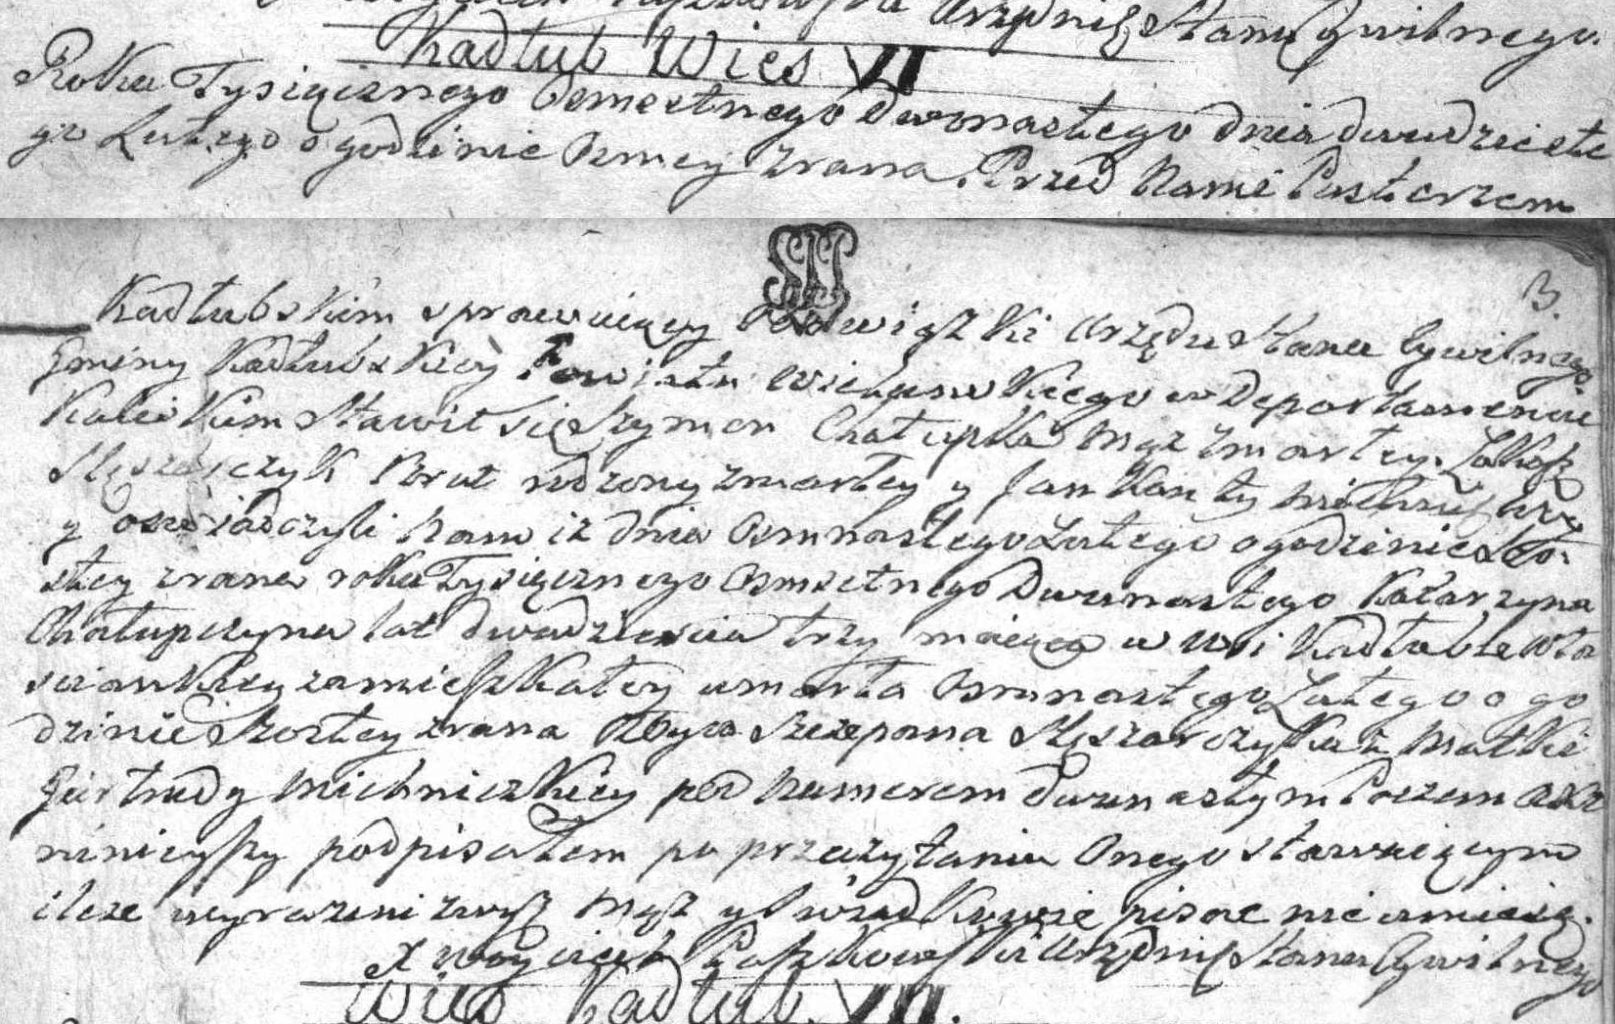 Urzędnię Stanu Cywilnego.
Kadłub Wies VI
Roku Tysiącznego Osmsetnego Dwonastego dnia dwudzieste
go Lutego o godzinie Osmey zrana. Przed Nami Pasterzem
3.
Kadłubskim sprawuiący Obowiązki Urzędu Stanu Cywilnego
Gminy Kadłubskiey Powiatu Wieluńskiego w Departamencie
Kalis Kim Stawił się Szymon Chałupka Mąż zmarłey. Łukasz
Slęszarczyk Brat rodzony zmarłey y Jan Kanty
y oswiadczyli Nam iż dnia Osmnastego Lutego o godzinie Szo:
stey zrana roku Tysiącznego Osmsetnego Dwunastego Katarzyna
Chałupczyna lat dwadziescia trzy maiąca w Wsi Kadłubie Wło
scianskiey zamieszkałey umarła Osmnastego Lutego o go
dzinie Szostey zrana Oyca Szczepana Slęszarczyka z Matki
Giertrudy Michniczkiey pod Numerem dwunastym Poczem Akt
ninieyszy podpisałem po przeczytaniu Onego stawaiącym
ileże wyrazeni zwysz Mąż y Swiadkowie pisac nie umieią.
X Woyciech Paszkowski Urzędnię Stanu Cywilnego
Wies Kadłub VII.